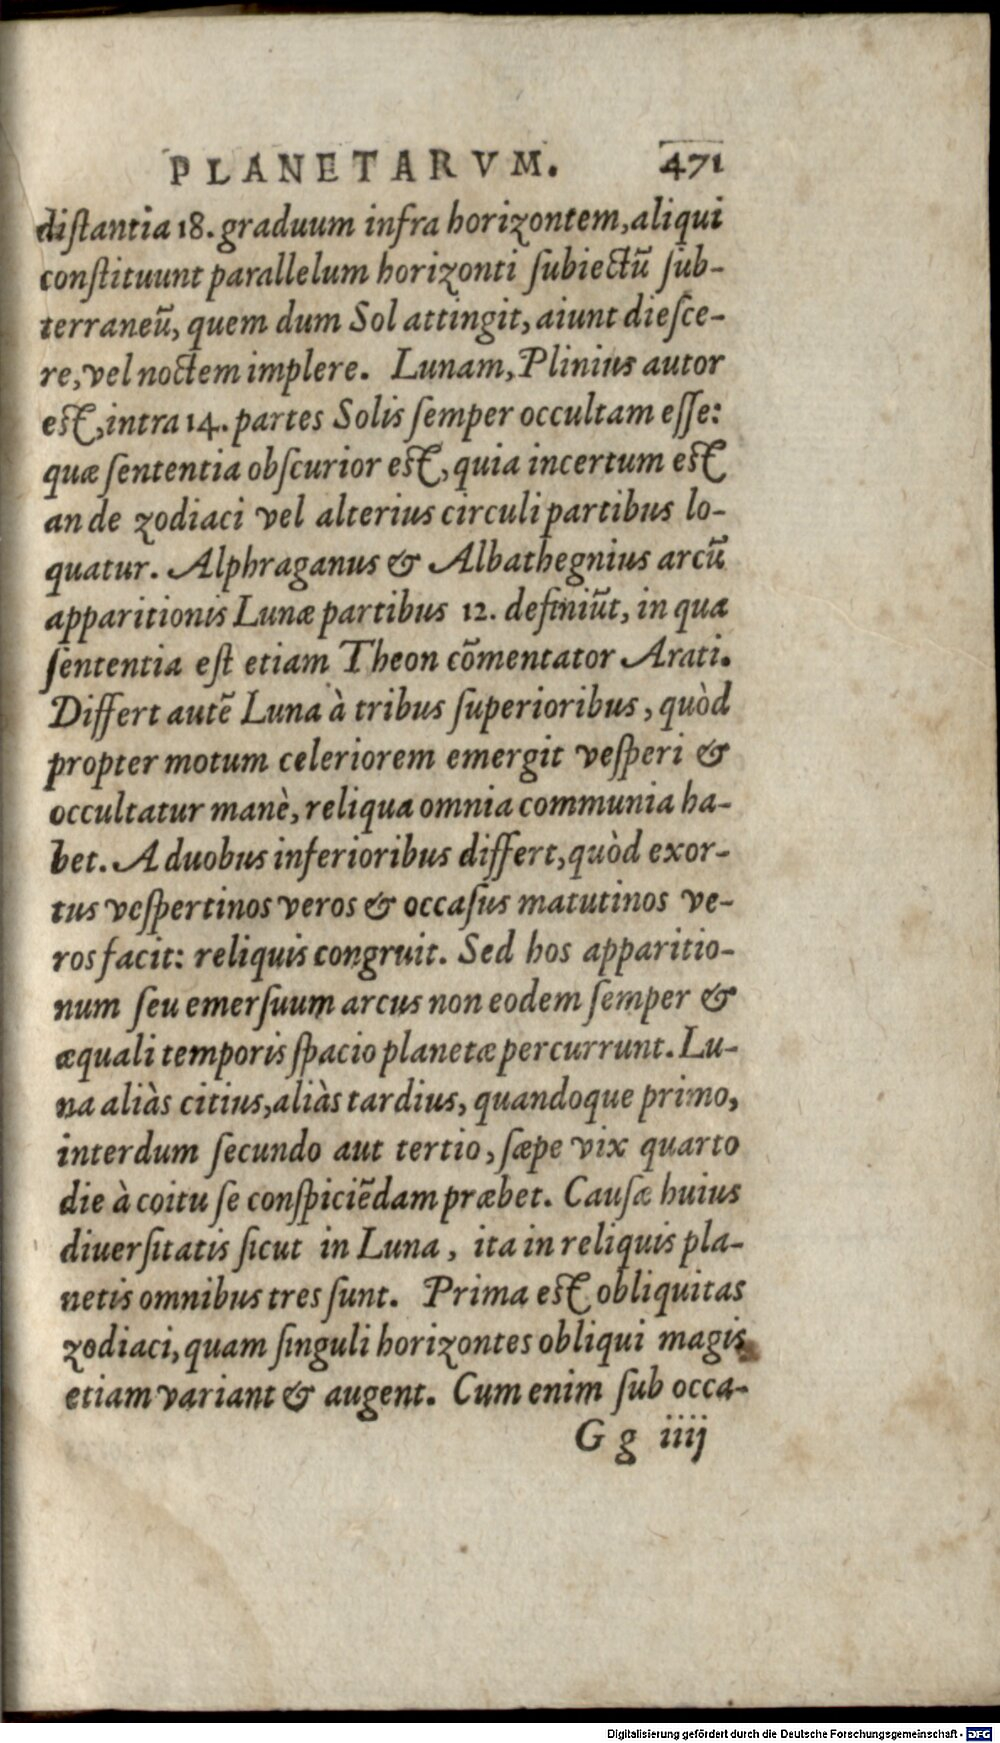 PLANETARVM. 471
diſtantia 18. graduum infra horizontem, aliqui
conſtituunt parallelum horizonti ſubiectũ ſub-
terraneũ, quem dum Sol attingit, aiunt dieſce-
re, vel noctem implere. Lunam, Plinius autor
eſt, intra 14. partes Solis ſemper occultam eſſe:
quæ ſententia obſcurior eſt, quia incertum eſt
an de zodiaci vel alterius circuli partibus lo-
quatur. Alphraganus & Albathegnius arcũ
apparitionis Lunæ partibus 12. definiũt, in qua
ſententia eſt etiam Theon cõmentator Arati.
Differt autẽ Luna à tribus ſuperioribus, quòd
propter motum celeriorem emergit veſperi &
occultatur manè, reliqua omnia communia ha-
bet. A duobus inferioribus differt, quòd exor-
tus veſpertinos veros & occaſus matutinos ve-
ros facit: reliquis congruit. Sed hos apparitio-
num ſeu emerſuum arcus non eodem ſemper &
æquali temporis ſpacio planetæ percurrunt. Lu-
na aliàs citius, aliàs tardius, quandoque primo,
interdum ſecundo aut tertio, ſæpe vix quarto
die à coitu ſe conſpiciẽdam præbet. Cauſæ huius
diuerſitatis ſicut in Luna, ita in reliquis pla-
netis omnibus tres ſunt. Prima eſt obliquitas
zodiaci, quam ſinguli horizontes obliqui magis
etiam variant & augent. Cum enim ſub occa-
G g iiij
Digitalisierung gefördert durch die Deutsche Forschungsgemeinschaft - DFG